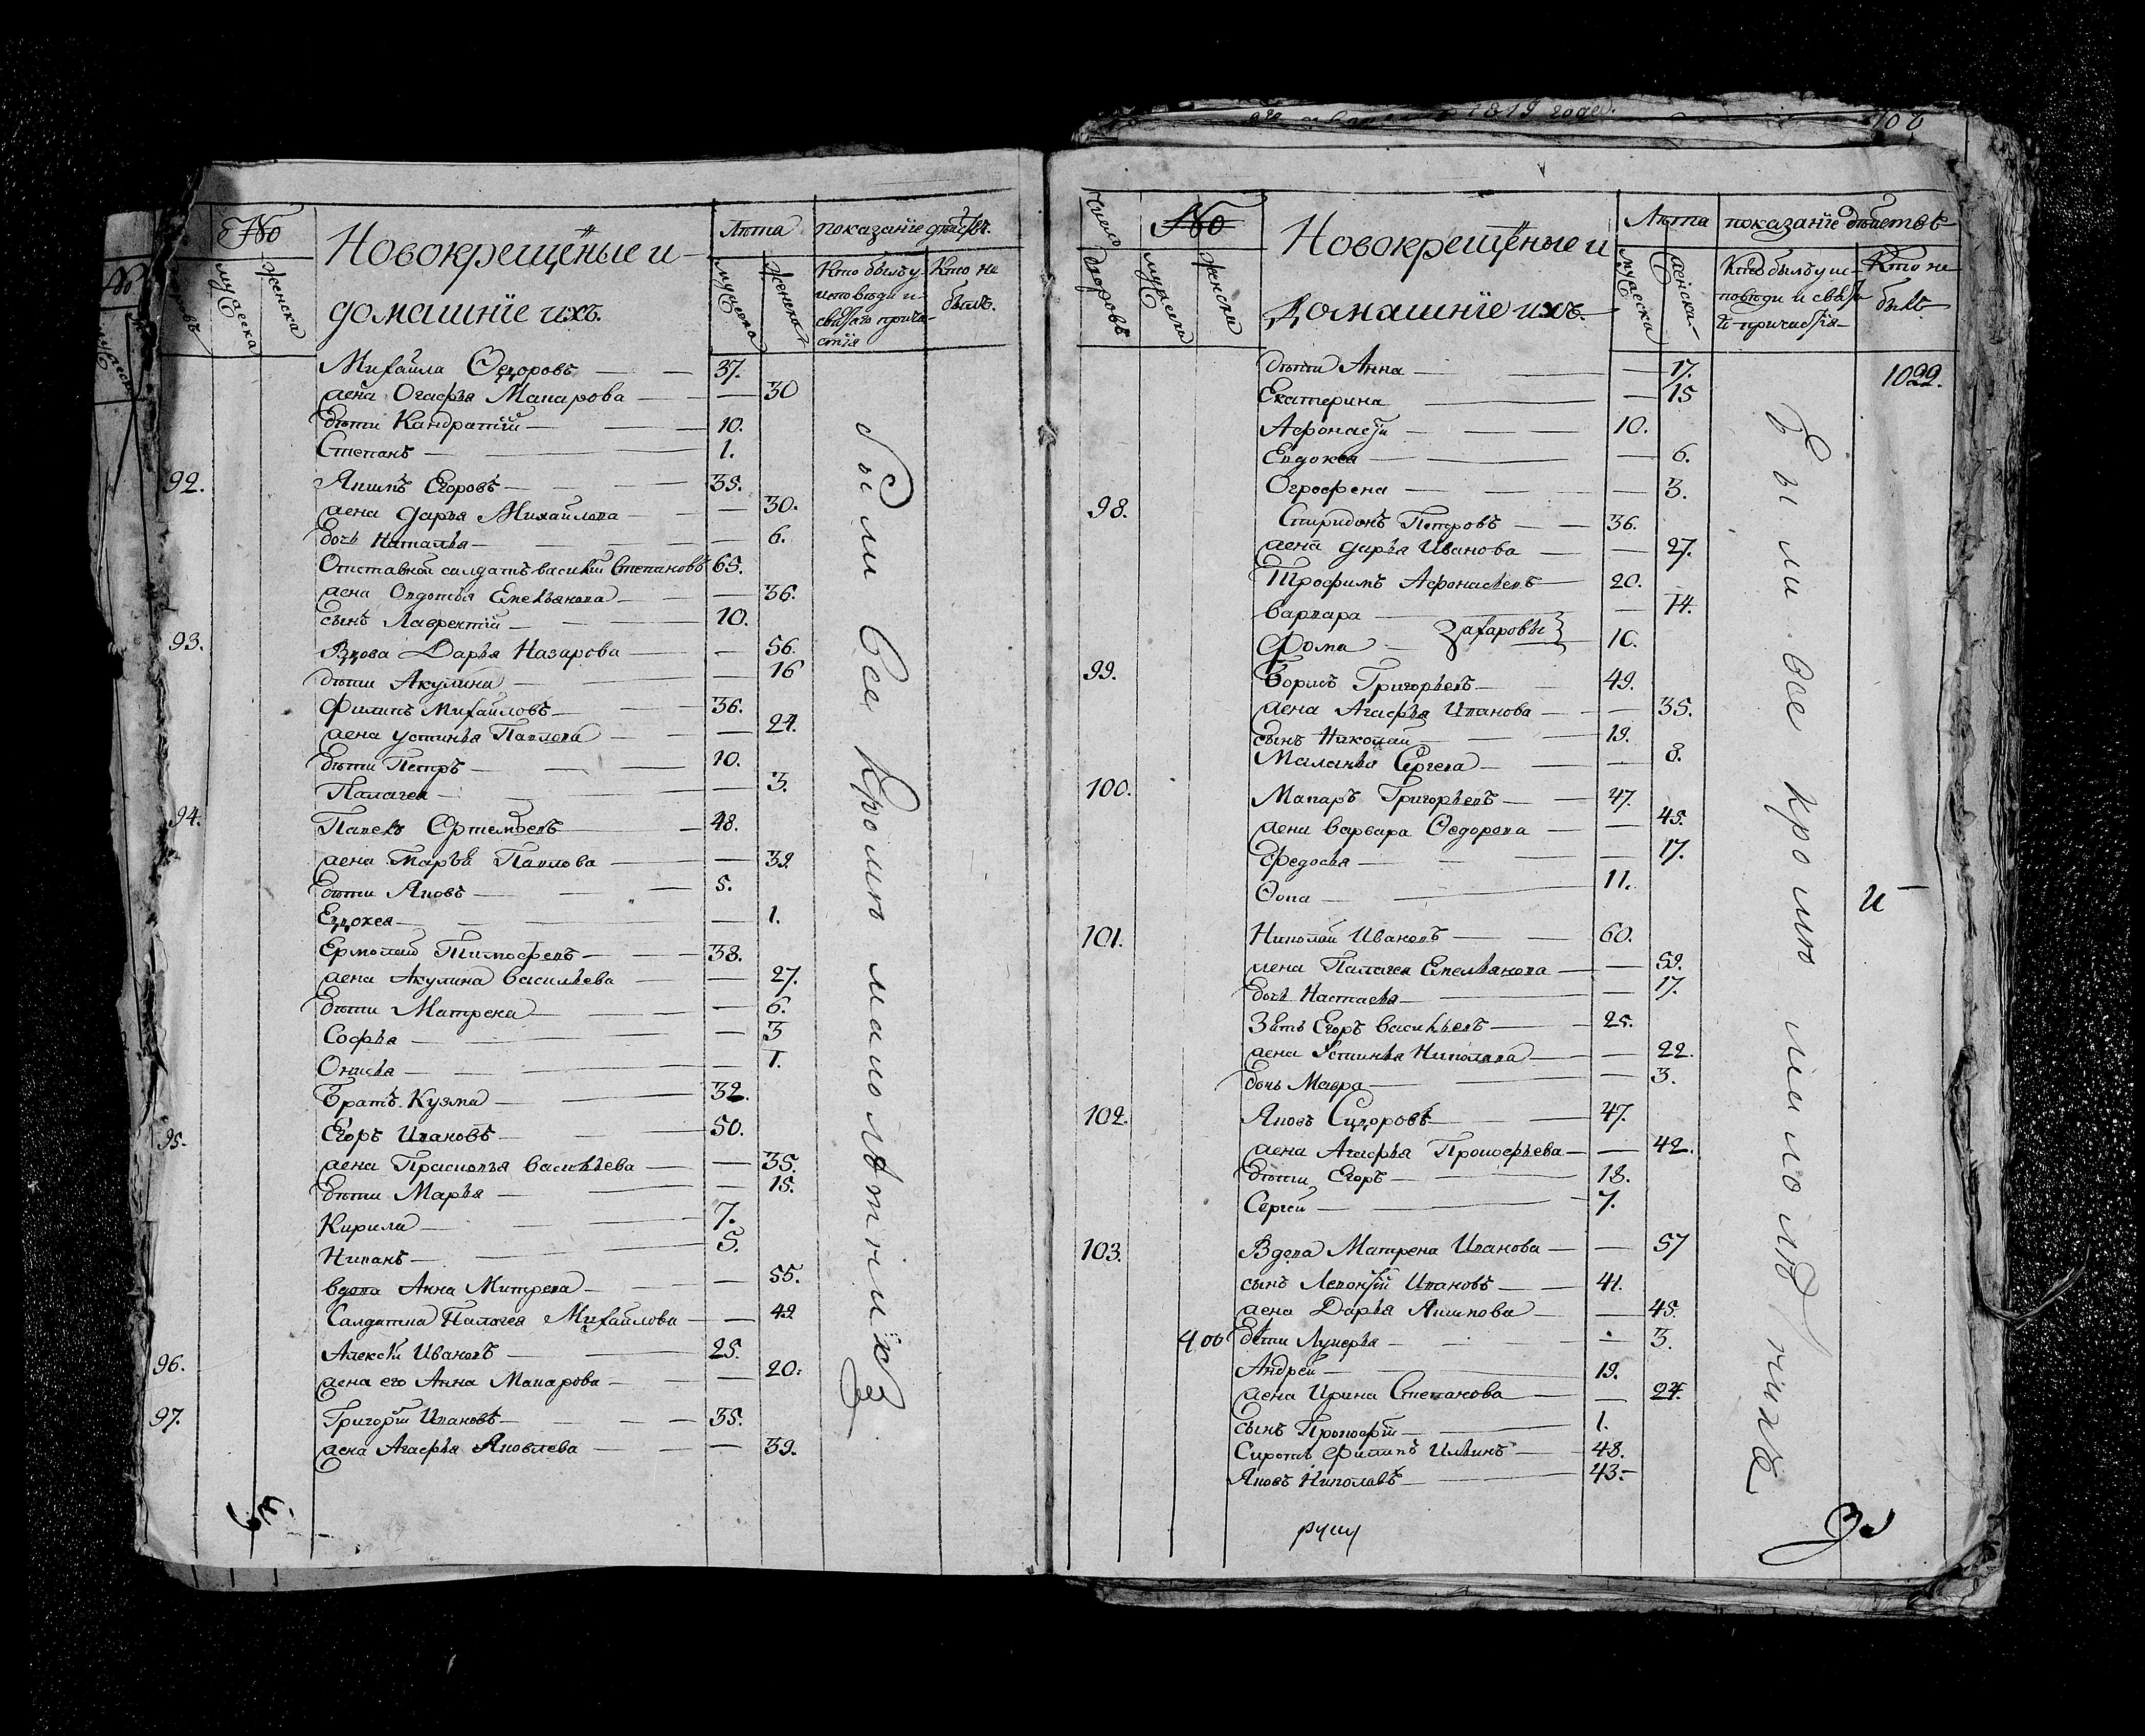 №
Новокрещѣные и
домашнїе ихъ.
Лѣта
показанїе дѣйств.
мужеска
женска
мужеска
женска
Кто былъ у
исповѣди и
святаго прича-
стїя
Кто не
былъ.
Михаила Ѳедоровъ 37.
жена Огафья Макарова 30
дѣти Кандратїй 10.
Степанъ 1.
92. Якимъ Егоровъ 35.
жена Дарья Михайлова 30.
дочь Наталья 6.
Отставной салдатъ василий Степановъ 65.
жена Овдотья Емельянова 36.
сынъ Лаврентїй 10.
93. Вдова Дарья Назарова 56.
дѣти Акулина 16
Филипъ Михайловъ 36.
жена устинья Павлова 24.
дѣти Петръ 10.
Палагея 3.
94. Павелъ Ортемьевъ 48.
жена Марья Павлова 39.
дѣти Яковъ 5.
Евдокея 1.
Ермолай Тимофеевъ 38.
жена Акулина васильева 27.
дѣти Матрена 6.
Софья 3
Онисья 1.
Братъ Кузма 32.
95. Егоръ Ивановъ 50.
жена Прасковья васильева 35.
дѣти Марья 15.
Кирила 7.
Никанъ 5.
вдова Анна Митрева 55.
Салдатка Палагея Михайлова 49
96. Алексѣй Ивановъ 25.
жена его Анна Макарова 20.
97. Григорїй Ивановъ 35.
жена Агафья Яковлева 39.
были все кромѣ малолѣтнихъ
1819 годе.
Число
дворовъ
№
мужеска
женска
Новокрещѣные и
домашнїе ихъ.
Лѣта
показанїе дѣйствъ
мужеска
женска
Кто былъ у ис-
повѣди и свята-
го причастїя
Кто не
былъ.
1022.
дѣти Анна 17.
Екатерина 15
Афонасїй 10.
Евдокея 6.
Огрофена 3.
98. Спиридонъ Петровъ 36.
жена дарья Иванова 27.
Трофимъ Афонасьевъ 20.
варвара 14.
Захаровы
Фома 10.
99. Борисъ Григорьевъ 49.
жена Агафья Иванова 35.
сынъ Николай 19.
Маланья Сергева 8.
100. Макаръ Григорьевъ 47.
жена варвара Ѳедорова 45.
Федосья 17.
Ѳока 11.
101. Николай Ивановъ 60.
жена Палагея Емельянова 59.
дочь Настасья 17.
Зять Егоръ васильевъ 25.
жена Устинья Николаева 22.
дочь Мавра 3.
102. Яковъ Сидоровъ 47.
жена Агафья Прокофьева 42.
дѣти Егоръ 18.
Сергей 7.
103. Вдова Матрена Иванова 57
сынъ Левонтїй Ивановъ 41.
жена Дарья Якимова 45.
400 дѣти Лукерья 3.
Андрей 19.
жена Ирина Степанова 24.
сынъ Прокофїй 1.
Сиротъ Филипъ Ильинъ 48.
Яковъ Николаевъ 43.
Были все кромѣ малолѣтнихъ
и